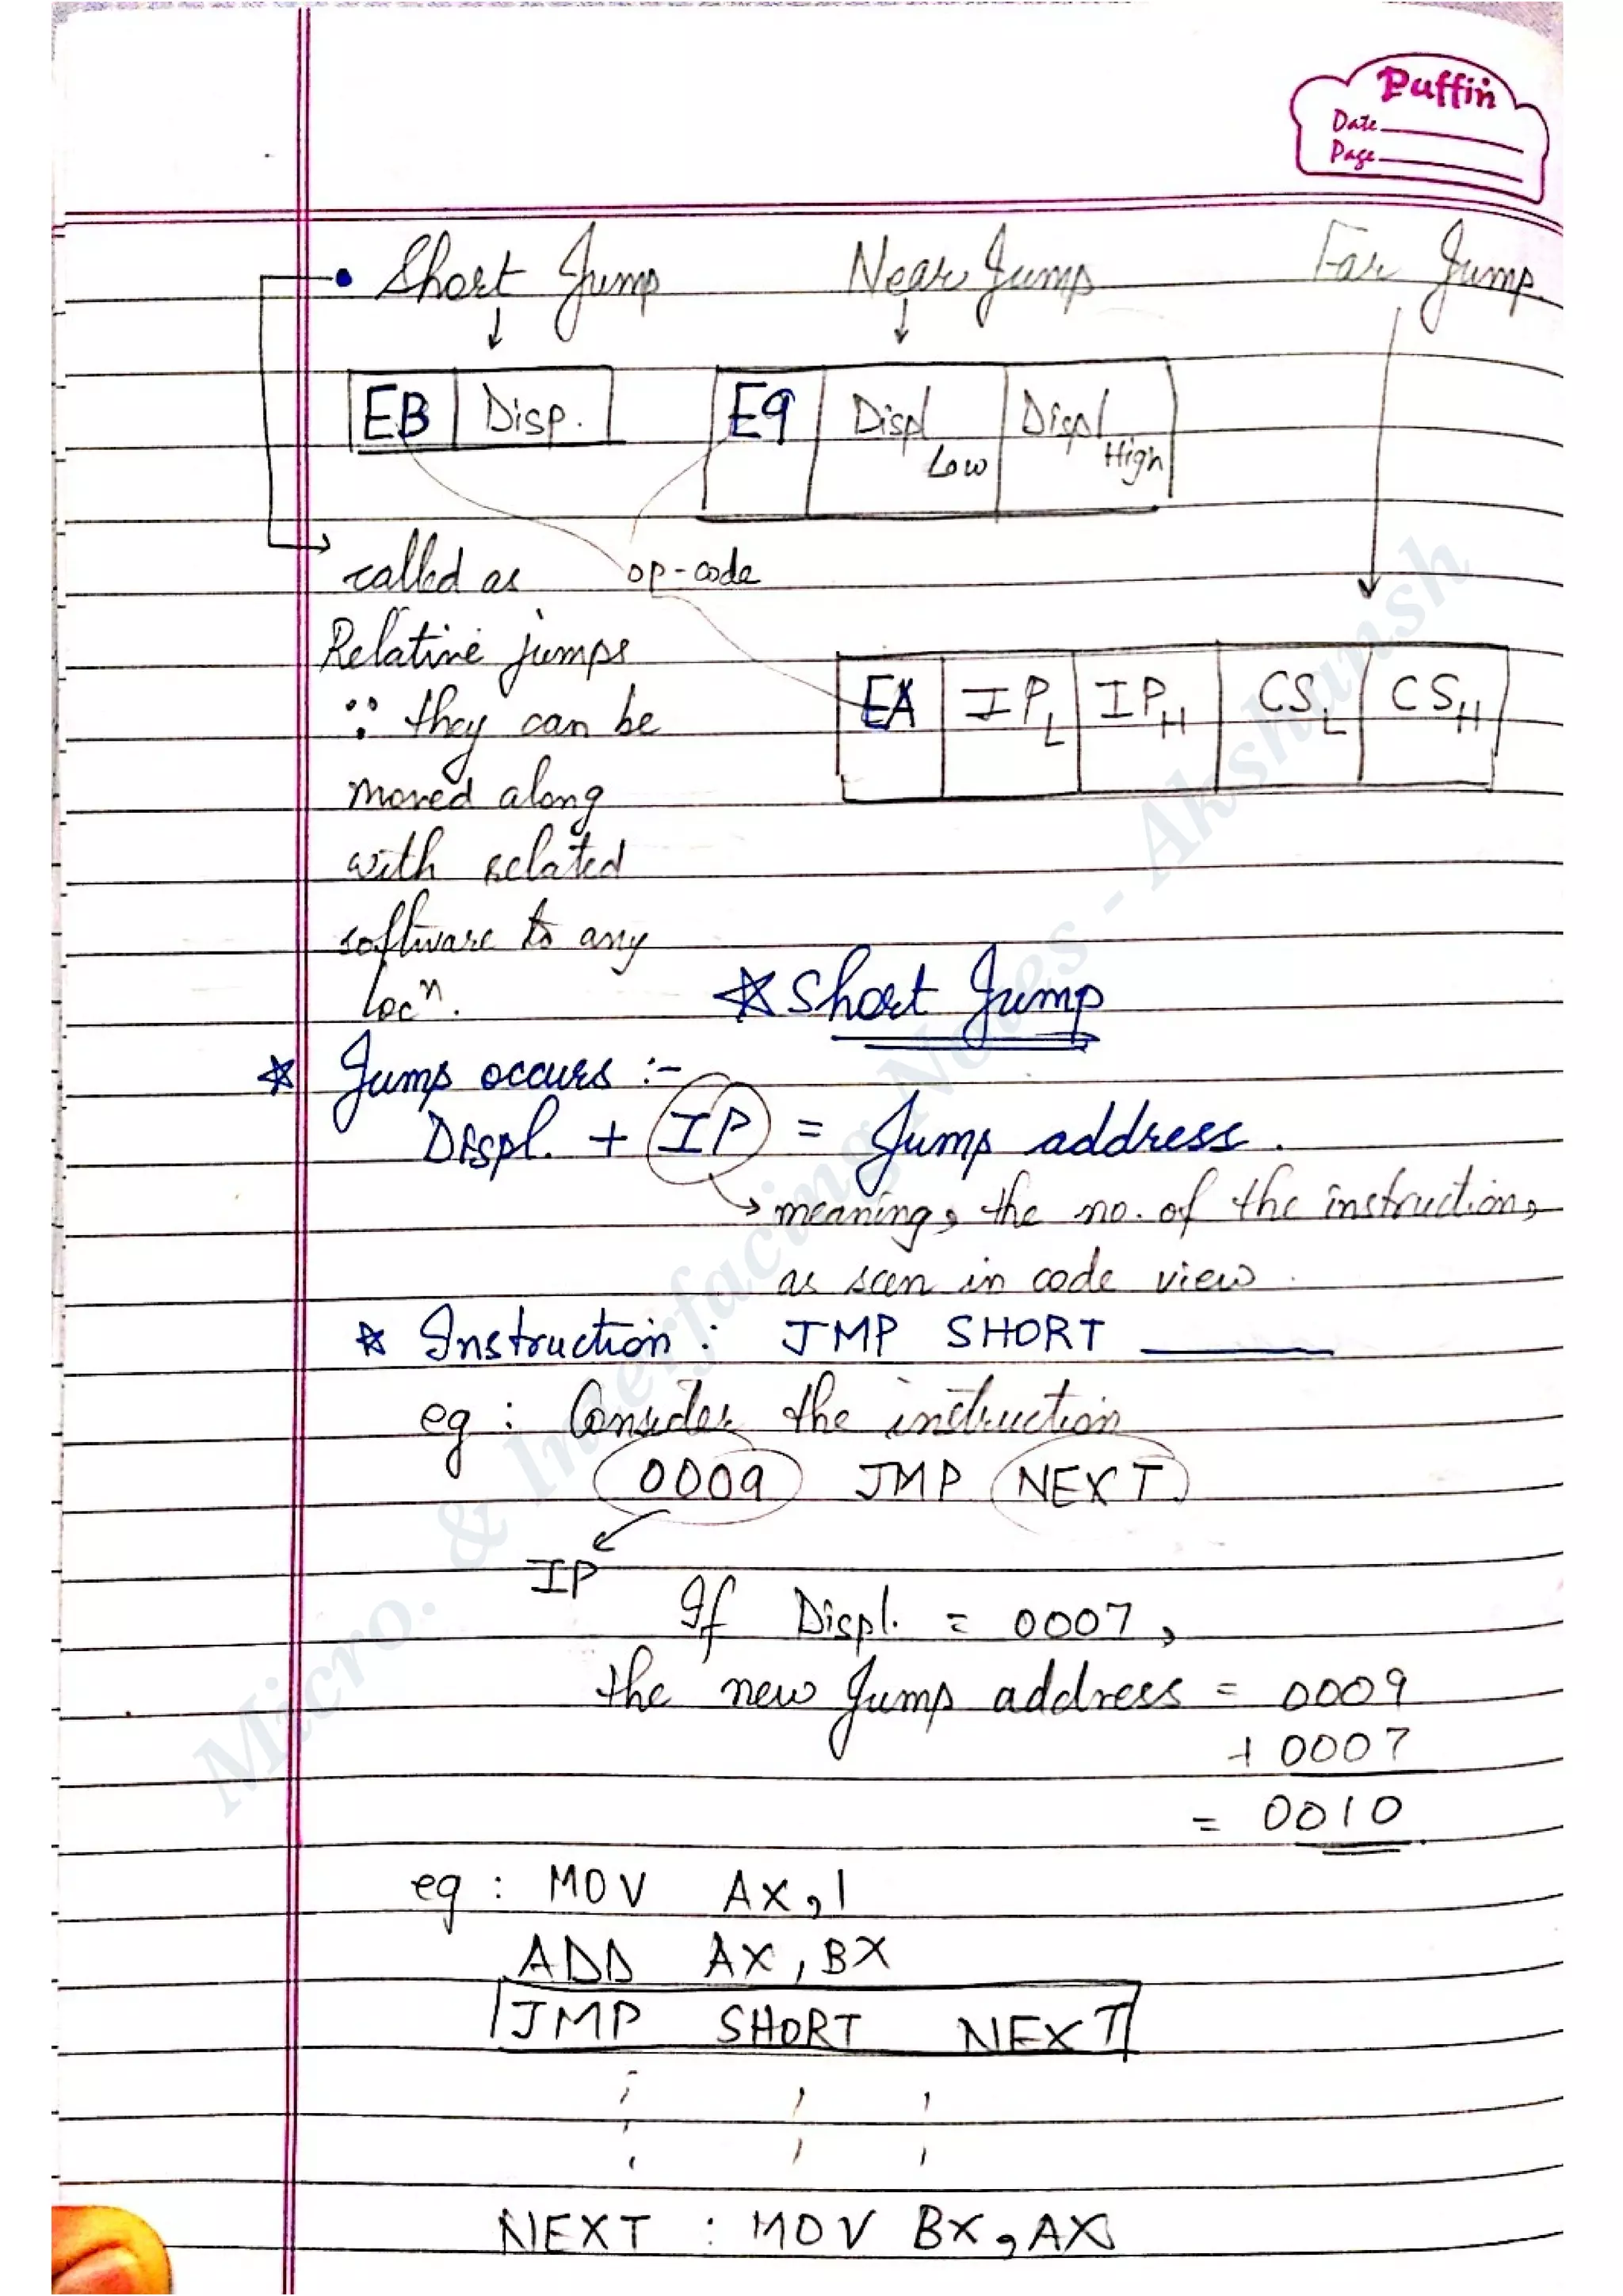 Puffin
Date
Page
• Short Jump Near Jump Far Jump.
EB Disp. E9 Displ Low Displ High
called as op-code
Relative jumps
∵ they can be
moved along
with related
software to any
locⁿ.
EA IP L IP H CS L CS H
☆ Short Jump
☆ Jump occurs :-
Displ. + IP = Jump address.
meaning, the no. of the instruction,
as seen in code view.
☆ Instruction : JMP SHORT ______
eg : Consider the instruction
0009 JMP NEXT
IP
If Displ. = 0007,
the new Jump address = 0009
+ 0007
= 0010
eg : MOV AX, 1
ADD AX, BX
JMP SHORT NEXT
NEXT : MOV BX, AX
Micro. & Interfacing Notes - Akshansh